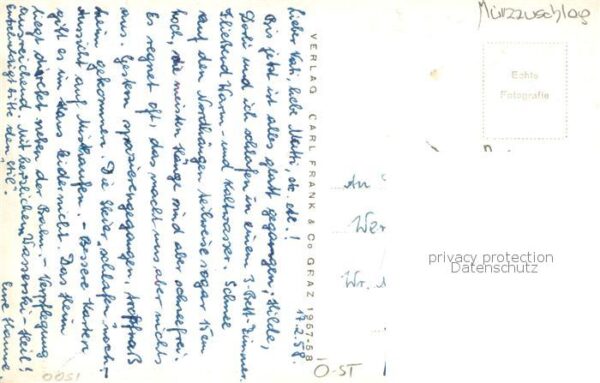 Mürzzuschlag
17.2.58.
Lieber Vati, liebe Mutti, etc. etc.!
Bis jetzt ist alles gut gegangen, Hilde,
Dorli und ich schlafen in einem 3-Bett-Zimmer.
Fließend Warm- und Kaltwasser. Schnee
auf den Nordhängen teilweise sogar 15 cm
hoch, die meisten Hänge sind aber schneefrei.
Es regnet oft, das macht uns aber nichts
aus. Gestern spazierengegangen, tropfnaß
heim gekommen. Die Steier. schlafen noch-
Aussicht auf Muskaufen. - Bessere Karten
gibt es im Haus leider nicht. Das Heim
liegt direkt neben der Bahn. - Verpflegung
ausreichend. Mit herzlichem Wasserski-Heil!
Entschuldigt bitte den "Stil".
Eure Hanne
VERLAG CARL FRANK & Co GRAZ 1957-58
Echte
Fotografie
An
Wr.
privacy protection
Datenschutz
Ö-ST